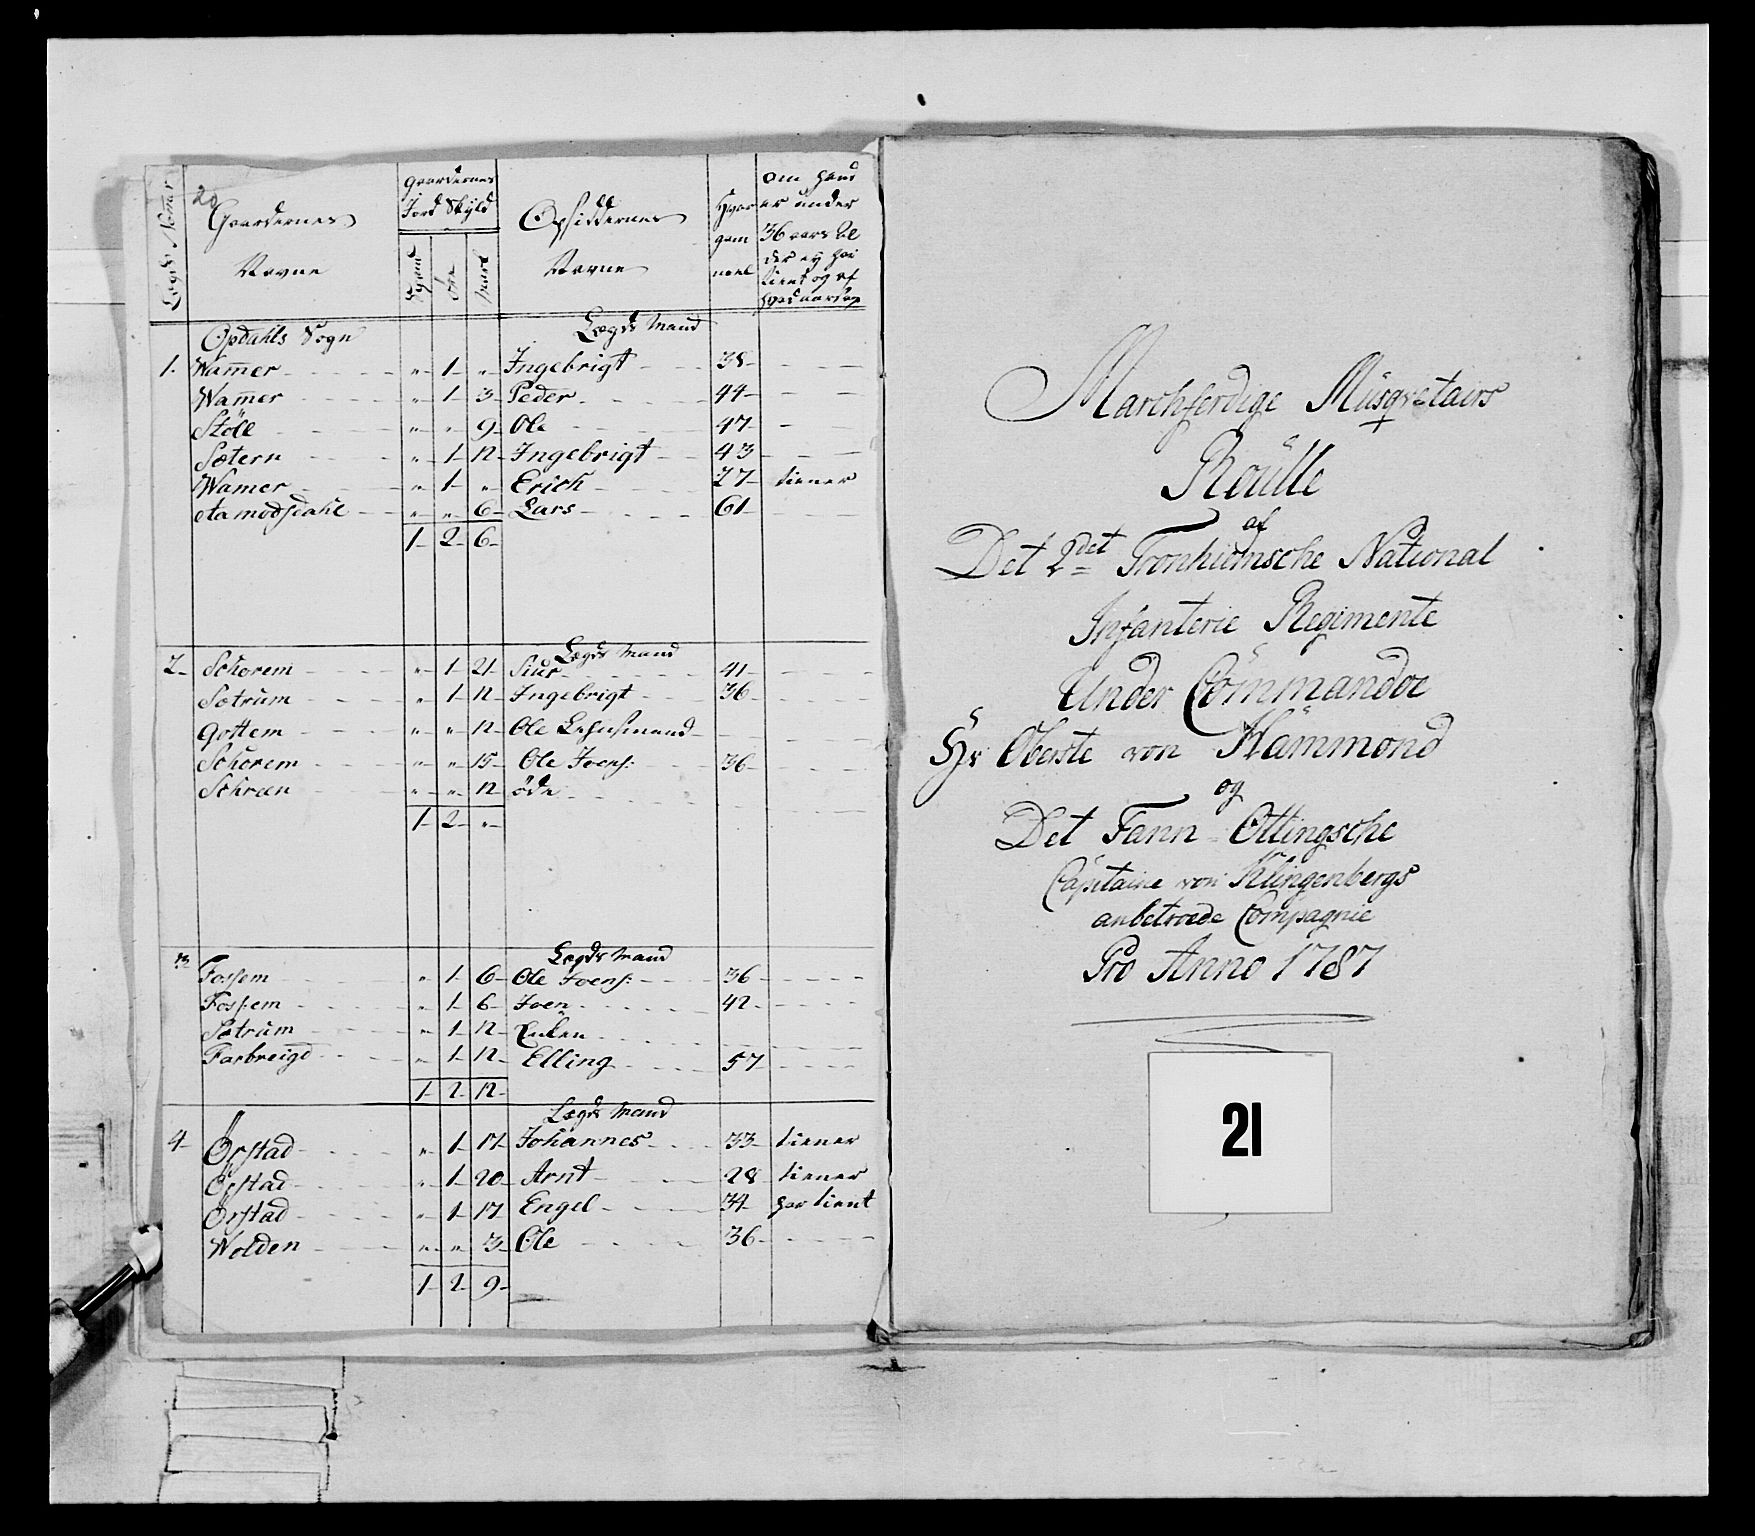 20
Lægds Nomer
Gaardernes Navne
Gaardernes Jord Skyld
Spand
Øre
Mark
Opsiddernes Navne
Hvor gam mel
Om hand er under 36 aars
Opdahls Sogn
Lægds Mand
1. Wam̄er " 1 " Ingebrigt 38
Wam̄er " 1 3 Peder 44
Stöll " " 9 Ole 47
Sætern " 1 12 Ingebrigt 43
Wamer " 1 " Erich 27 tiener
Aamodsdahl " " 6 Lars 61
1 2 6
Lægds Mand
2 Schorem " 1 21 Siur 41
Sætrum " 1 12 Ingebrigt 36
Gottem " " 12 Ole Lehnsmand
Schorem " " 15 Ole Joens: 36
Schræn " " 12 öde
1 2 "
Lægds Mand
3 Fossem " 1 6 Ole Joens: 36
Fossem " 1 6 Joen 42
Sætrum " 1 12 Enken
Farbreigd " 1 12 Elling 57
1 2 12
Lægds Mand
4 Örstad " 1 17 Johannes 33 tiener
Örstad " 1 20 Arnt 28 tiener
Örstad " 1 17 Engel 34 har tient
Wolden " " 3 Ole 36
1 2 9
Marchferdige Musqvetairs
Roulle
af
Det 2det Tronhiemsche National
Infanterie Regimente
Under Commandoe
Hr Oberste von Hammond
og
Det Fann Ottingsche
Capitaine von Klingenbergs
anbetroede Compagnie
Pro Anno 1787
21